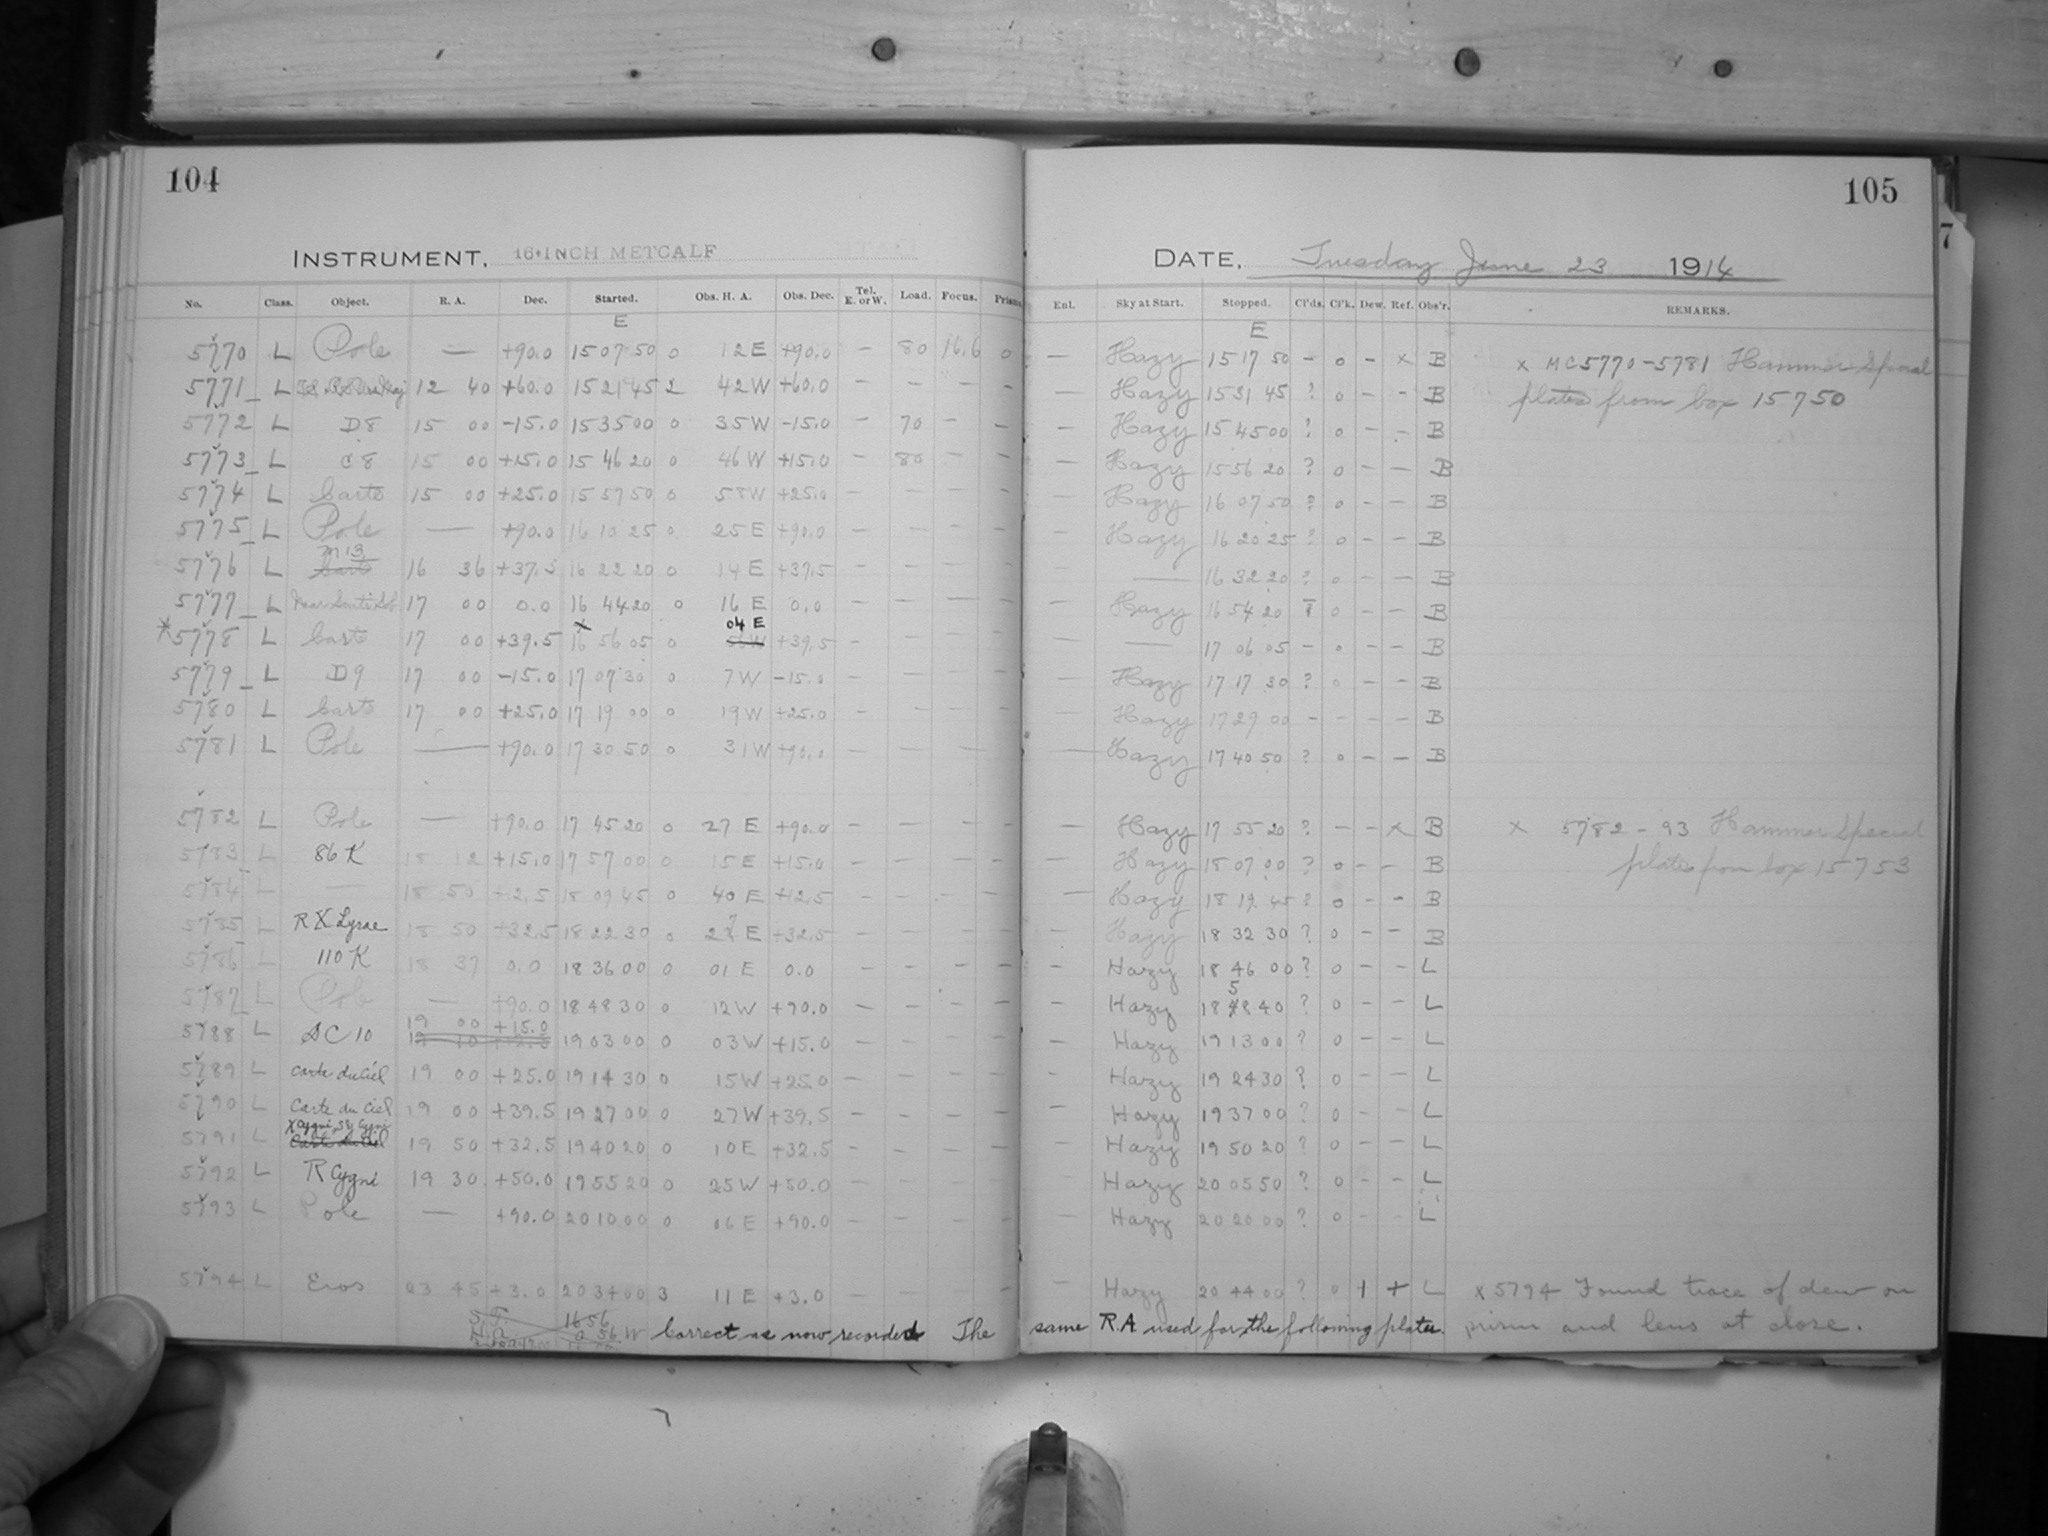 104
105
7
INSTRUMENT, 16-INCH METCALF
DATE, Tuesday June 23 1914
No. Class. Object. R. A. Dec. Started. Obs. H. A. Obs. Dec. Tel. E. or W. Load. Focus. Prism Enl. Sky at Start. Stopped. Cl'ds. Cl'k. Dew. Ref. Obs'r. REMARKS.
E E
5770 L Pole — +90.0 15 07 50 0 12 E +90.0 - 80 16.6 0 — Hazy 15 17 50 - 0 - x B x MC5770-5781 Hammer Special
5771 L 12 40 +60.0 15 21 45 2 42 W +60.0 - - - - — Hazy 15 31 45 ? 0 - - B plates from box 15750
5772 L D8 15 00 -15.0 15 35 00 0 35 W -15.0 - 70 - - — Hazy 15 45 00 ? 0 - - B
5773 L C8 15 00 +15.0 15 46 20 0 46 W +15.0 - 80 - - — Hazy 15 56 20 ? 0 - - B
5774 L Carte 15 00 +25.0 15 57 50 0 58 W +25.0 - - - - — Hazy 16 07 50 ? 0 - - B
5775 L Pole — +90.0 16 10 25 0 25 E +90.0 - - - - — Hazy 16 20 25 ? 0 - - B
M13
5776 L Carte 16 36 +37.5 16 22 20 0 14 E +37.5 - - - - — — 16 32 20 ? 0 - - B
5777 L 17 00 0.0 16 44 20 0 16 E 0.0 - - - - — Hazy 16 54 20 ? 0 - - B
x 04 E
*5778 L Carte 17 00 +39.5 16 56 05 0 56 W +39.5 - - - - — — 17 06 05 - 0 - - B
5779 L D9 17 00 -15.0 17 07 30 0 7 W -15.0 - - - - — Hazy 17 17 30 ? 0 - - B
5780 L Carte 17 00 +25.0 17 19 00 0 19 W +25.0 - - - - — Hazy 17 29 00 - - - - B
5781 L Pole — +90.0 17 30 50 0 31 W +90.0 - - - - — Hazy 17 40 50 ? 0 - - B
5782 L Pole — +90.0 17 45 20 0 27 E +90.0 - - - - — Hazy 17 55 20 ? - - x B x 5782-93 Hammer Special
5783 L 86 K 18 12 +15.0 17 57 00 0 15 E +15.0 - - - - — Hazy 18 07 00 ? 0 - - B plates from box 15753
5784 L — 18 50 +12.5 18 09 45 0 40 E +12.5 - - - - — Hazy 18 19 45 ? 0 - - B
5785 L RX Lyrae 18 50 +32.5 18 22 30 0 27 E +32.5 - - - - — Hazy 18 32 30 ? 0 - - B
5786 L 110 K 18 37 0.0 18 36 00 0 01 E 0.0 - - - - — Hazy 18 46 00 ? 0 - - L
5
5787 L Pole — +90.0 18 48 30 0 12 W +90.0 - - - - — Hazy 18 48 40 ? 0 - - L
19 00 +15.0
5788 L SC 10 19 10 +12.5 19 03 00 0 03 W +15.0 - - - - — Hazy 19 13 00 ? 0 - - L
5789 L Carte du Ciel 19 00 +25.0 19 14 30 0 15 W +25.0 - - - - — Hazy 19 24 30 ? 0 - - L
5790 L Carte du Ciel 19 00 +39.5 19 27 00 0 27 W +39.5 - - - - — Hazy 19 37 00 ? 0 - - L
X Cygni, SY Cygni
5791 L Carte du Ciel 19 50 +32.5 19 40 20 0 10 E +32.5 - - - - — Hazy 19 50 20 ? 0 - - L
5792 L R Cygni 19 30 +50.0 19 55 20 0 25 W +50.0 - - - - — Hazy 20 05 50 ? 0 - - L
5793 L Pole — +90.0 20 10 00 0 06 E +90.0 - - - - — Hazy 20 20 00 ? 0 - - L
5794 L Eros 23 45 +3.0 20 34 00 3 11 E +3.0 - - - - — Hazy 20 44 00 ? 0 + + L x 5794 Found trace of dew on
prism and lens at close.
S.T. 16 56
H.A. 0 56 W Correct as now recorded The same R.A used for the following plates.